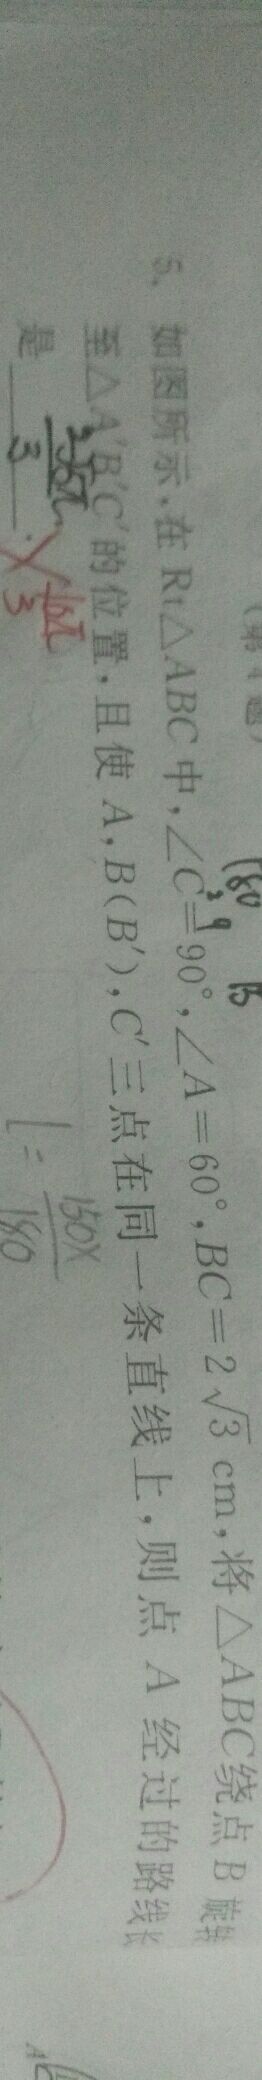 (第4题)
180
B
5. 如图所示,在Rt△ABC中,∠C=90°,∠A=60°,BC=2√3 cm,将△ABC绕点B旋转
至△A′B′C′的位置,且使A,B(B′),C′三点在同一条直线上,则点A经过的路线长
是 . 16π/3
l= 150π/180
A